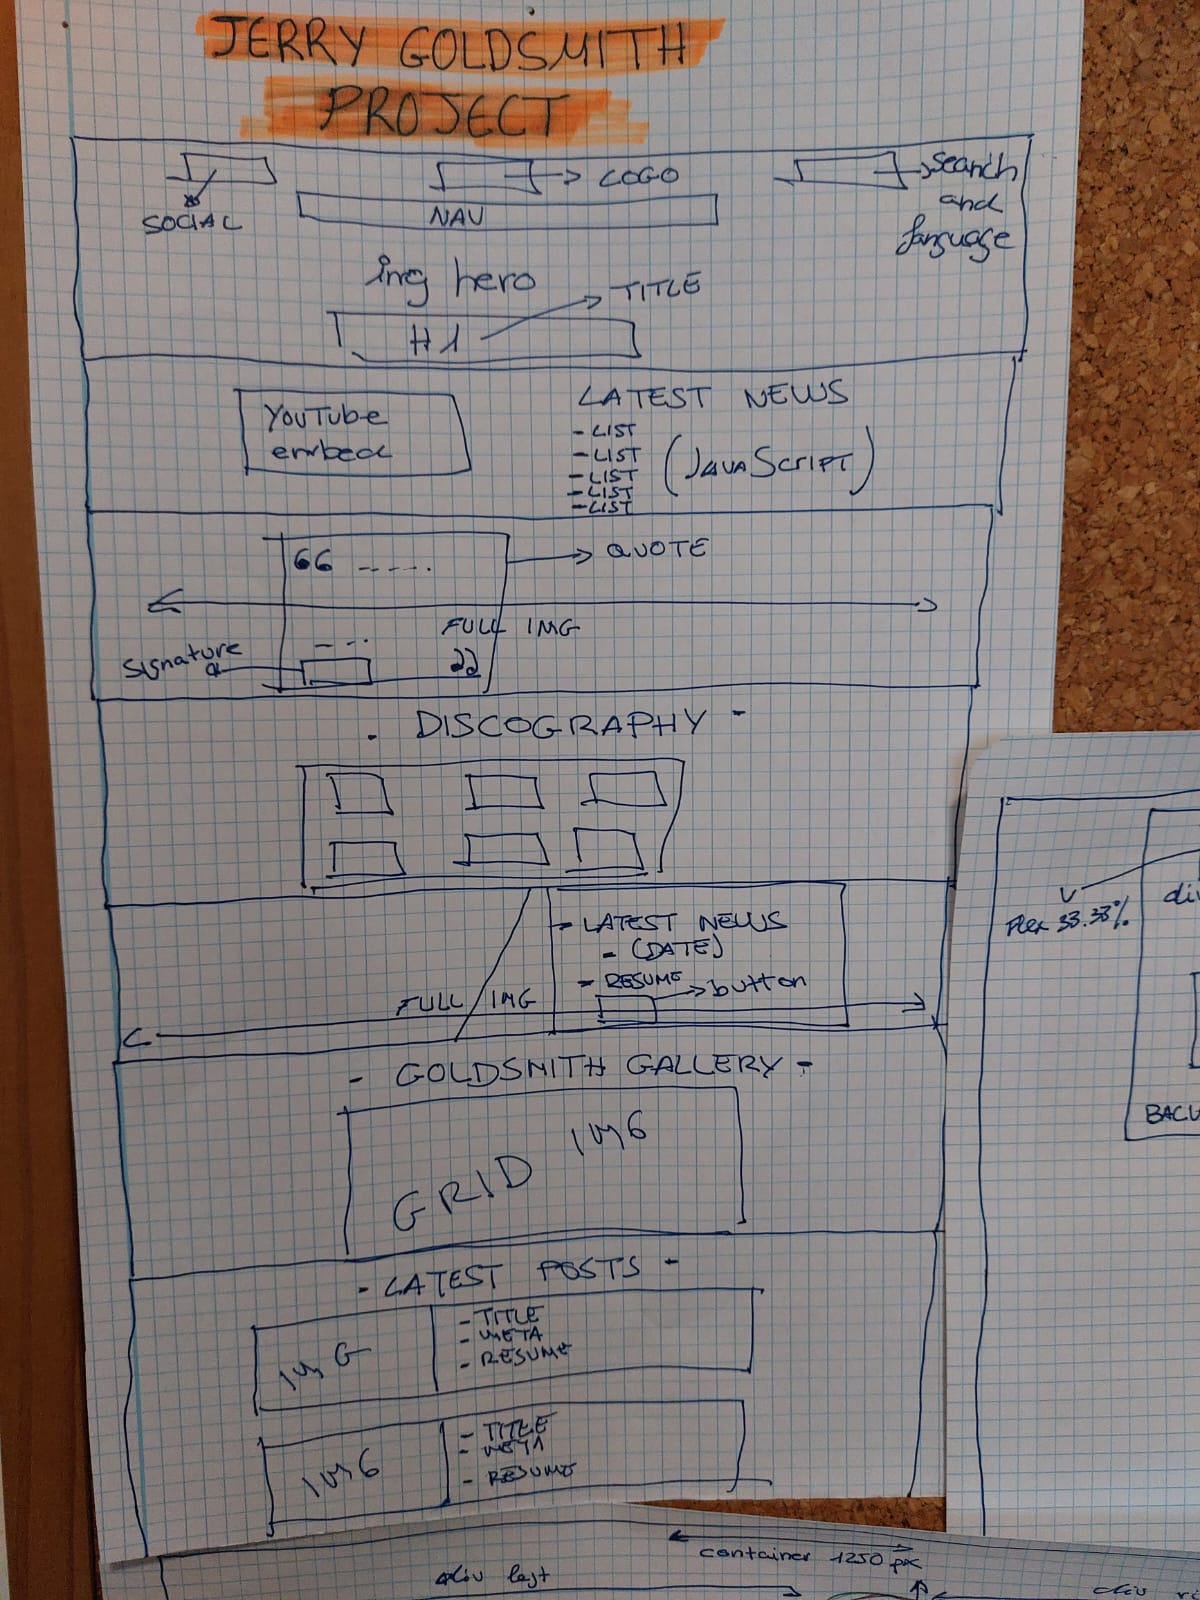 JERRY GOLDSMITH
PROJECT
SOCIAL
LOGO
Search
and
language
NAV
img hero
TITLE
H1
YOUTube
embed
LATEST NEWS
- LIST
- LIST
- LIST
- LIST
- LIST
(JAVASCRIPT)
66 -----.
QUOTE
FULL IMG
Signature
- DISCOGRAPHY -
- LATEST NEWS
- (DATE)
- RESUME
button
FULL IMG
- GOLDSMITH GALLERY -
IMG
GRID
- LATEST POSTS -
IMG
- TITLE
- META
- RESUME
IMG
- TITLE
- META
- RESUME
Flex 33.33%
container 1250 px
div left